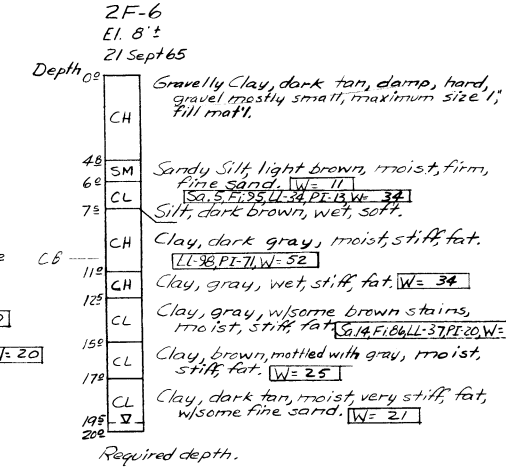 2F-6
El. 8'±
21 Sept 65
Depth
0⁰
Gravelly Clay, dark tan, damp, hard,
gravel mostly small, maximum size 1",
fill mat'l.
CH
4⁸
SM
Sandy Silt, light brown, moist, firm,
fine sand. W= 11
6⁰
CL
Sa.5, Fi.95, LL-34, PI-13, W= 34
7⁵
Silt, dark brown, wet, soft.
CH
Clay, dark gray, moist, stiff, fat.
LL-98, PI-71, W= 52
C6
11⁰
CH
Clay, gray, wet, stiff, fat. W= 34
12⁵
CL
Clay, gray, w/some brown stains,
moist, stiff, fat. Sa.14, Fi.86, LL-37, PI-20, W=
15⁰
W= 20
CL
Clay, brown, mottled with gray, moist,
stiff, fat. W= 25
17⁰
CL
Clay, dark tan, moist, very stiff, fat,
w/some fine sand. W= 21
19⁵
20⁰
Required depth.